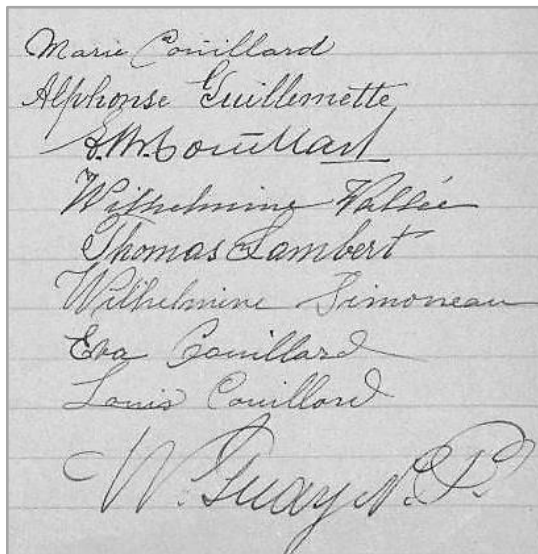 Marie Couillard
Alphonse Guillemette
Couillard
Wilhelmine Vallée
Thomas Lambert
Wilhelmine Simoneau
Eva Couillard
Louis Couillard
W. Guay N. P.